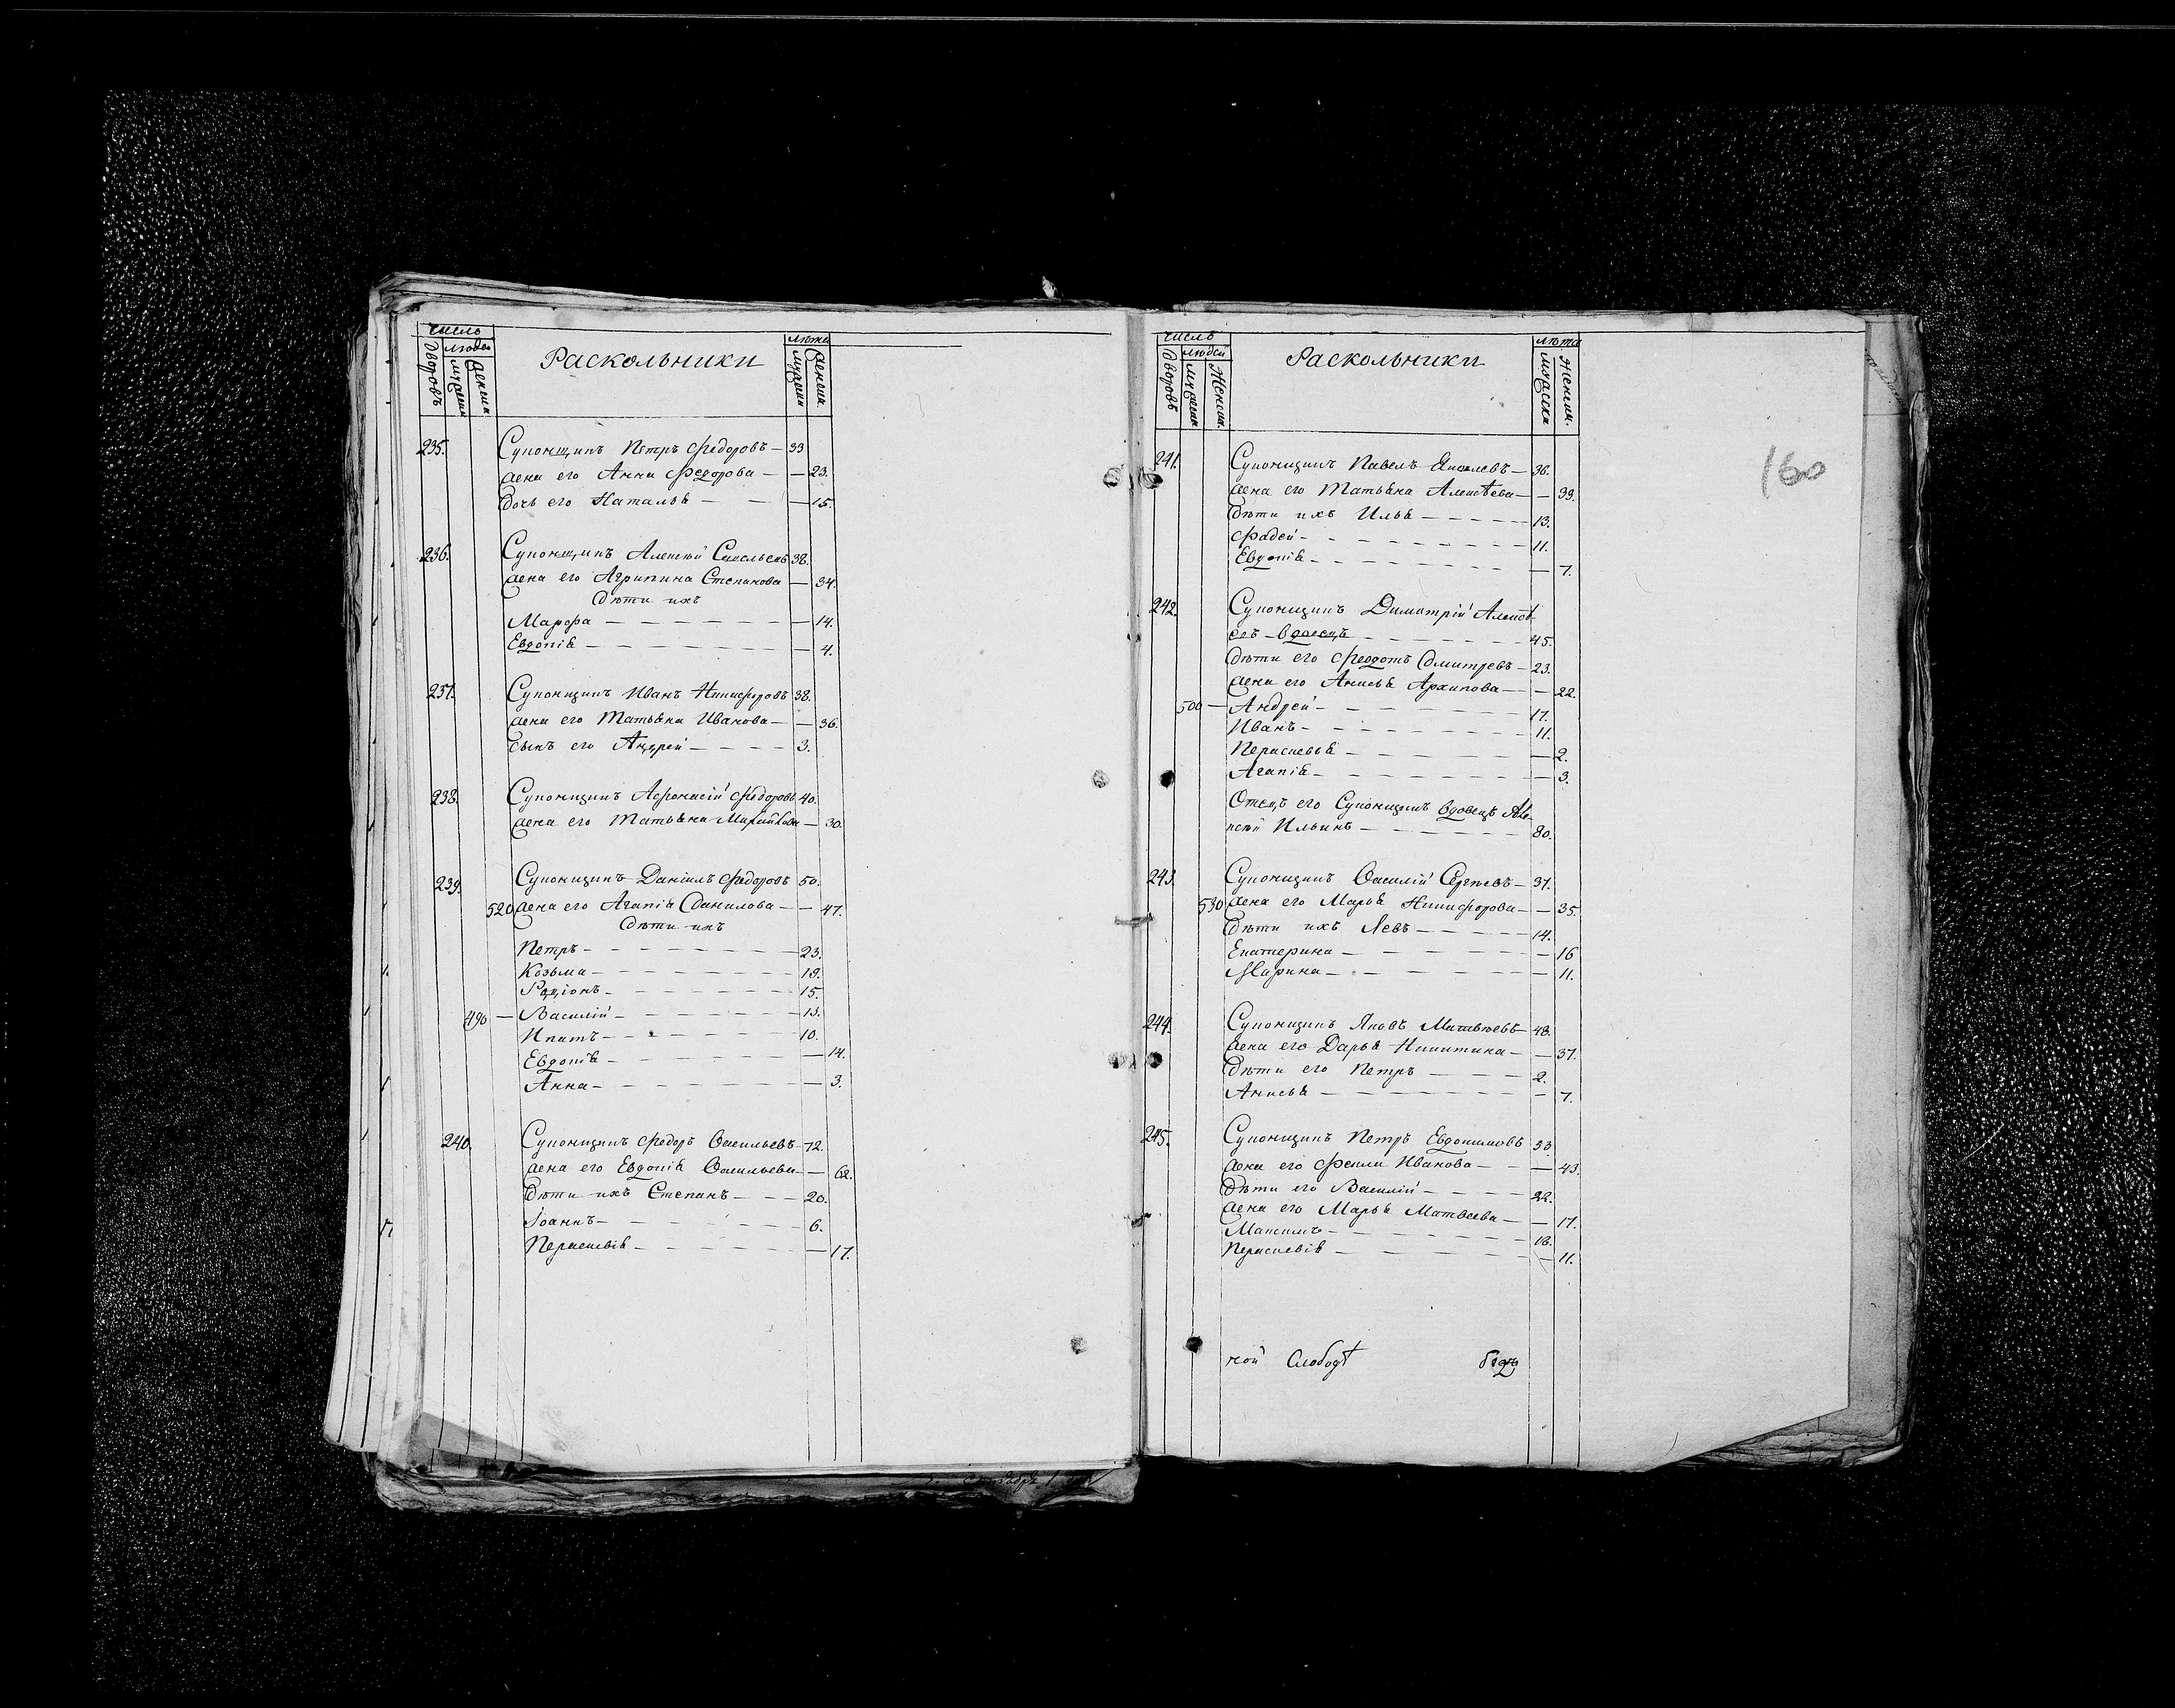 число
дворовъ
людей
мужеска
женска
Раскольники
лѣта
мужеска
женска
235. Супонщинъ Петръ Федоровъ — 33
жена его Анна Федорова — — 23.
дочь его Наталья — — — 15.
236. Супонщинъ Алексѣй Савельевъ 38.
жена его Агрипина Степанова — 34.
дѣти ихъ
Марфа — — — 14.
Евдокія — — — 4.
237. Супонщинъ Иванъ Никифоровъ 38.
жена его Татьяна Иванова — — 36.
сынъ его Андрей — — — 3.
238. Супонщинъ Афонасій Федоровъ 40.
жена его Татьяна — 30.
239. Супонщинъ Даніилъ Федоровъ 50.
520 жена его Агапія Данилова — — 47.
дѣти ихъ
Петръ — — — 23.
Козьма — — — 18.
Родіонъ — — — 15.
490 — Василій — — — 13.
Ипатъ — — — 10.
Евдокія — — — 14.
Анна — — — 3.
240. Супонщинъ Федоръ Васильевъ — 72.
жена его Евдокія Васильева — 62.
дѣти ихъ Степанъ — — — 20.
Іоаннъ — — — 6.
Параскевія — — — 17.
числѣ
дворовъ
людей
мужеска
Женск.
Раскольники
лѣта
мужеска
Женск.
160
241. Супонщинъ Павелъ Яковлевъ — 36.
жена его Татьяна Алексѣева — — 39.
дѣти ихъ Илья — — — 13.
Фадей — — — 11.
Евдокія — — — 7.
242. Супонщинъ Димитрій Алексѣ
евъ — вдовецъ — — — 45.
дѣти его Феодотъ Дмитревъ — 23.
жена его Анисья Архипова — — 22.
500 — Андрей — — — 17.
Иванъ — — — 11.
Параскевья — — — 2.
Агапія — — — 3.
Отецъ его Супонщинъ вдовецъ Але-
ксѣй Ильинъ — — — 80.
243. Супонщинъ Василій Сергѣевъ — 37.
530 жена его Марья Никифорова — — 35.
дѣти ихъ Левъ — — — 14.
Екатерина — — — 16
Марина — — — 11.
244. Супонщинъ Яковъ Матвѣевъ — 48.
жена его Дарья Никитина — — 37.
дѣти его Петръ — — — 2.
Анисья — — — 7.
245. Супонщинъ Петръ Евдокимовъ 33
жена его Фекла Иванова — — 43.
дѣти его Василій — — — 22.
жена его Марья Матвеева — — 17.
Максимъ — — — 18.
Параскевія — — — 11.
ной Слободѣ